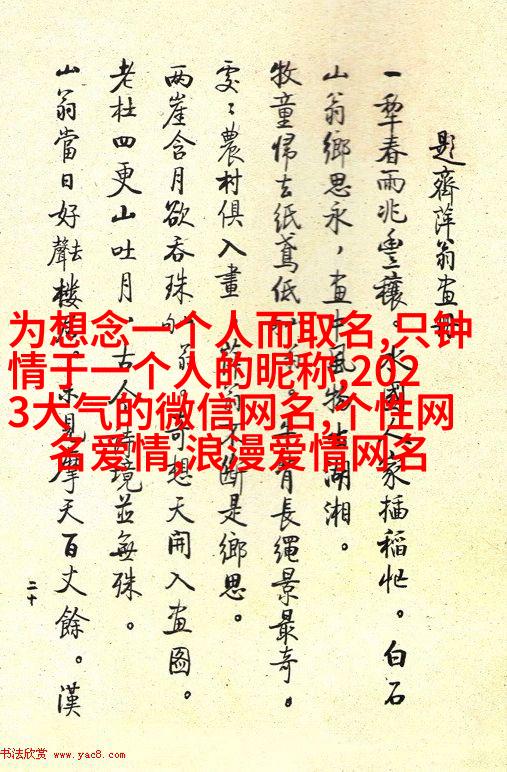 为想念一个人而取名,只钟
情于一个人的昵称,202
3大气的微信网名,个性网
名爱情,浪漫爱情网名
題齊萍翁畫
一犁春雨兆豐穰。水國人家插稻忙。白石
山翁鄉思永,畫中風物湖湘。
牧童歸去紙鳶低牛背長繩景最奇。
處々農村俱入畫翁不斷是鄉思。
兩崖含月欲吞珠翁奇想天開入畫圖。
老杜四更山吐月,古人詩境並無殊。
山翁當日好去聲樓居。未見摩天百丈餘。漢
二十
书法欣赏 www.yac8.com